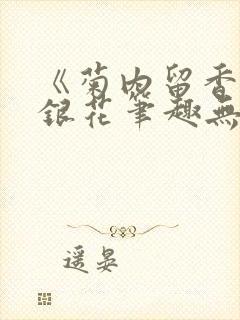 《菊内留香
銀花筆趣無
遥晏